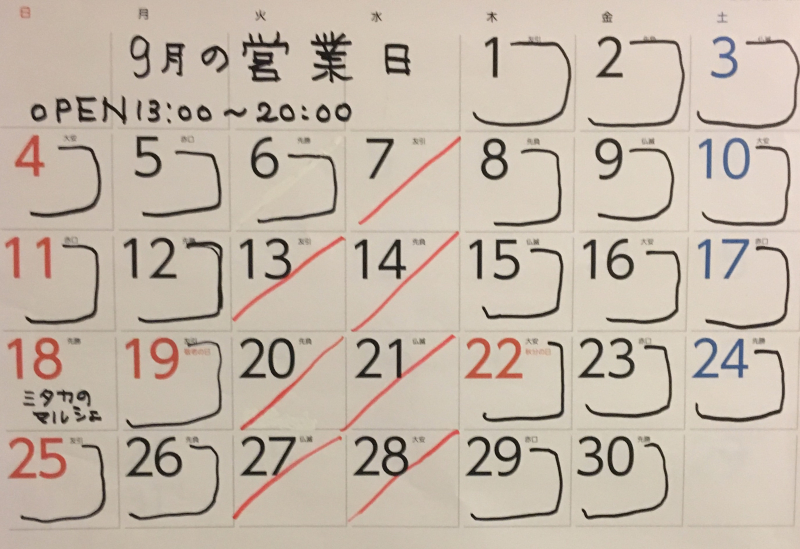 日 月 火 水 木 金 土
9月の営業日 1 友引 2 先負 3 仏滅
OPEN 13:00～20:00
4 大安 5 赤口 6 先勝 7 友引 8 先負 9 仏滅 10 大安
11 赤口 12 先勝 13 友引 14 先負 15 仏滅 16 大安 17 赤口
18 先勝 19 友引 敬老の日 20 先負 21 仏滅 22 大安 秋分の日 23 赤口 24 先勝
ミタカの
マルシェ
25 友引 26 先負 27 仏滅 28 大安 29 赤口 30 先勝